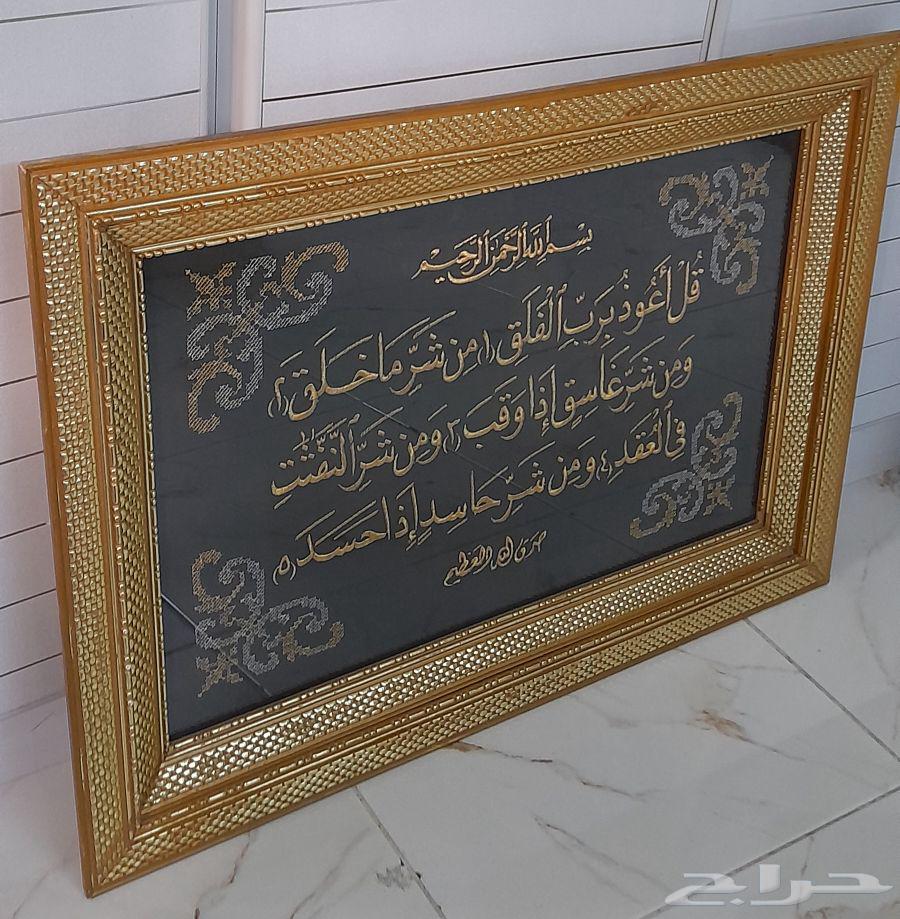 بسم الله الرحمن الرحيم
قُلْ أَعُوذُ بِرَبِّ ٱلْفَلَقِ (١) مِن شَرِّ مَا خَلَقَ (٢)
وَمِن شَرِّ غَاسِقٍ إِذَا وَقَبَ (٣) وَمِن شَرِّ ٱلنَّفَّٰثَٰتِ
فِى ٱلْعُقَدِ (٤) وَمِن شَرِّ حَاسِدٍ إِذَا حَسَدَ (٥)
صدق الله العظيم
حراج